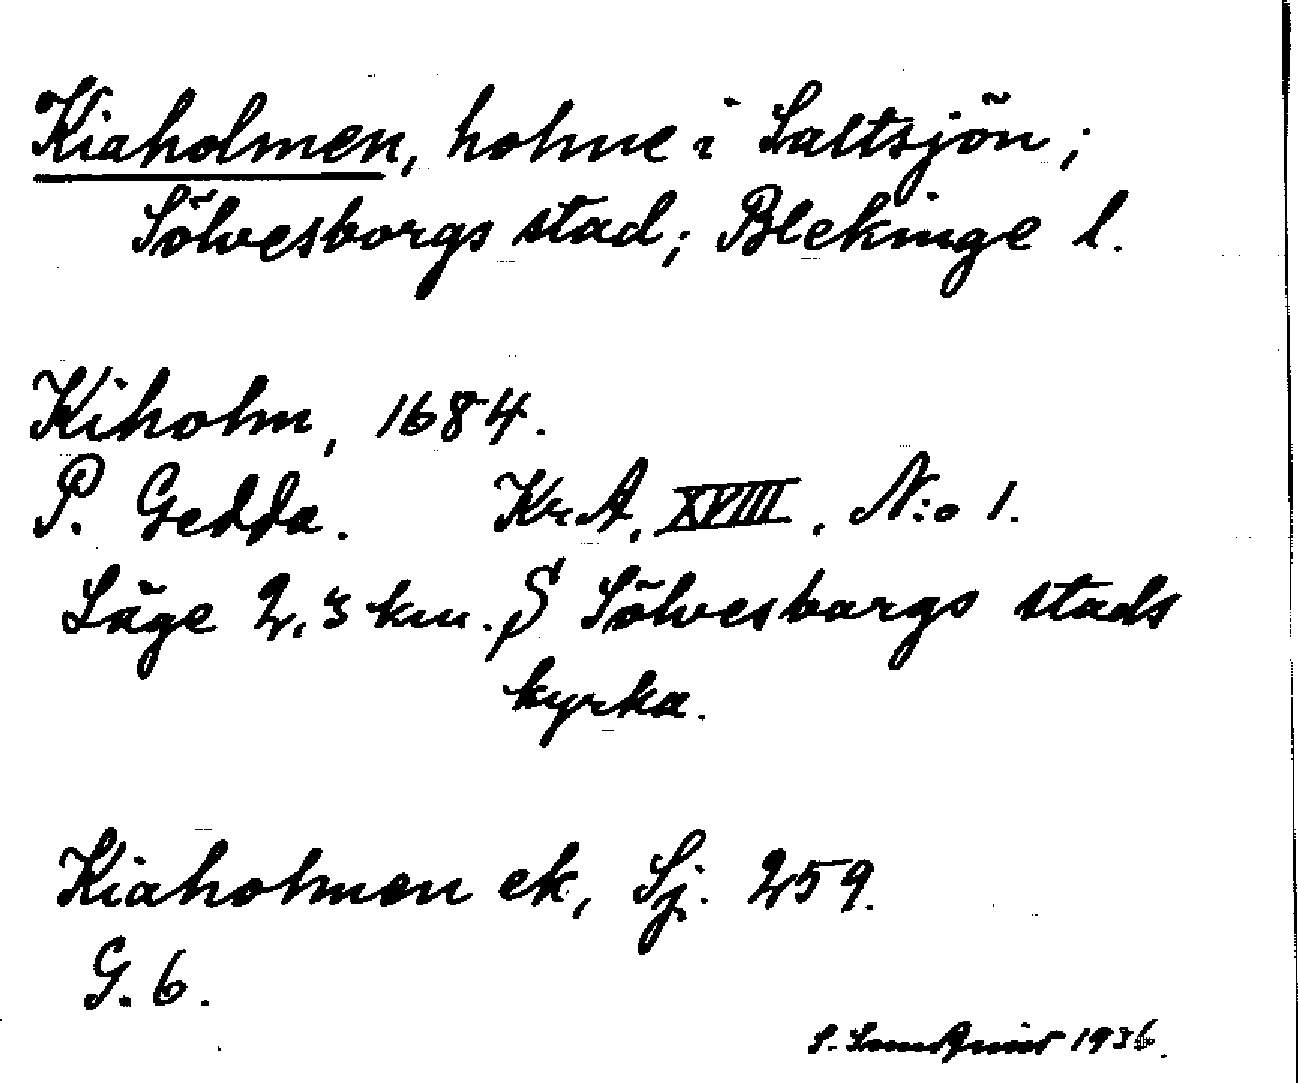 Kiaholmen, holme i Saltsjön;
Sölvesborgs stad; Blekinge l.
Kiholm, 1684.
P. Gedda. Kr.A. XVIII. N:o 1.
Läge 2,3 km. S Sölvesborgs stads
kyrka.
Kiaholmen ek, Sj. 259.
G. 6.
S. 1936.